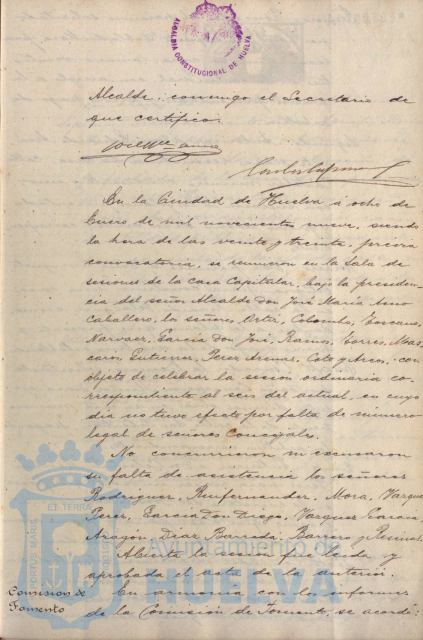 ALCALDIA CONSTITUCIONAL DE HUELVA
Alcalde, conmigo el Secretario de
que certifico.
En la Ciudad de Huelva á ocho de
Enero de mil novecientos nueve, siendo
la hora de las veinte y treinta, previa
convocatoria, se reunieron en la Sala de
sesiones de la Casa Capitular, bajo la presiden-
cia del señor Alcalde don José María
Caballero, los señores Ortiz, Colombo, Toscano,
Narvaez, García don José, Ramos, Torres, Mas-
caros, Gutierrez, Perez, Coto y Arcos, con
objeto de celebrar la sesion ordinaria co-
rrespondiente al seis del actual, en cuyo
dia no tuvo efecto por falta de número
legal de señores Concejales.
No concurrieron ni excusaron
su falta de asistencia los señores
Rodriguez, Mora, Vazquez
Perez, García Don Diego, Vazquez García,
Aragón, Diaz, Barrero y
Abierta la sesion fue leida y
aprobada el acta de la anterior.
Comision de
Fomento
En armonia con los informes
de la Comision de Fomento, se acordó:
PORTUS MARIS
ET TERRAE
Ayuntamiento de
HUELVA